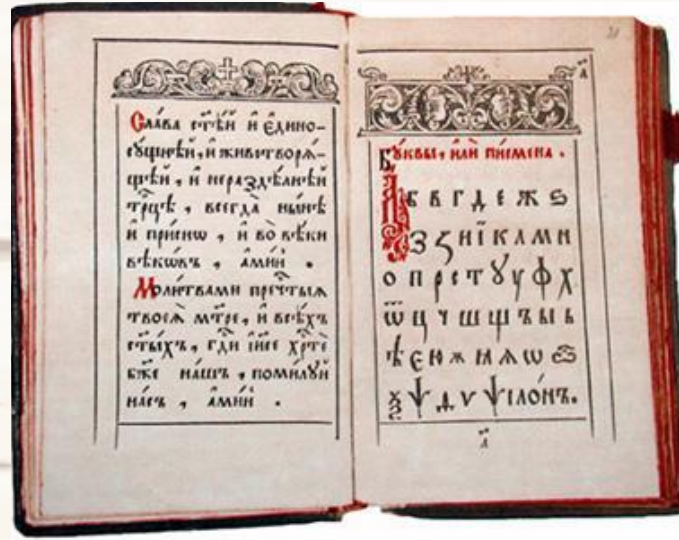 Сла́ва ст҃ѣ́й и҆ є҆дино-
су́щнѣй, и҆ животворѧ́-
щей, и҆ нераздѣ́лнѣй
трⷪ҇цѣ, всегда̀ ны́нѣ
и҆ при́снѡ, и҆ во вѣ́ки
вѣкѡ́въ, а҆ми́нь.
Мол҃и́твами пречⷭ҇тыѧ
твоеѧ̀ мт҃ре, и҆ всѣ́хъ
ст҃ы́хъ, гдⷭ҇и і҆и҃се хрⷭ҇те
бж҃е на́шъ, поми́лꙋй
на́съ, а҆ми́нь.
а҃
Бꙋ́квы, и҆лѝ писмена̀.
А Б В Г Д Е Ж Ѕ
З Ꙁ И Ї К Л М Н
О П Р С Т Ꙋ У Ф Х
Ѿ Ц Ч Ш Щ Ъ Ы Ь
Ѣ Є Ю Ѫ Ꙗ Ѧ Ѡ
Ѯ Ѱ Ѵ Ѱїло́нъ.
а҃